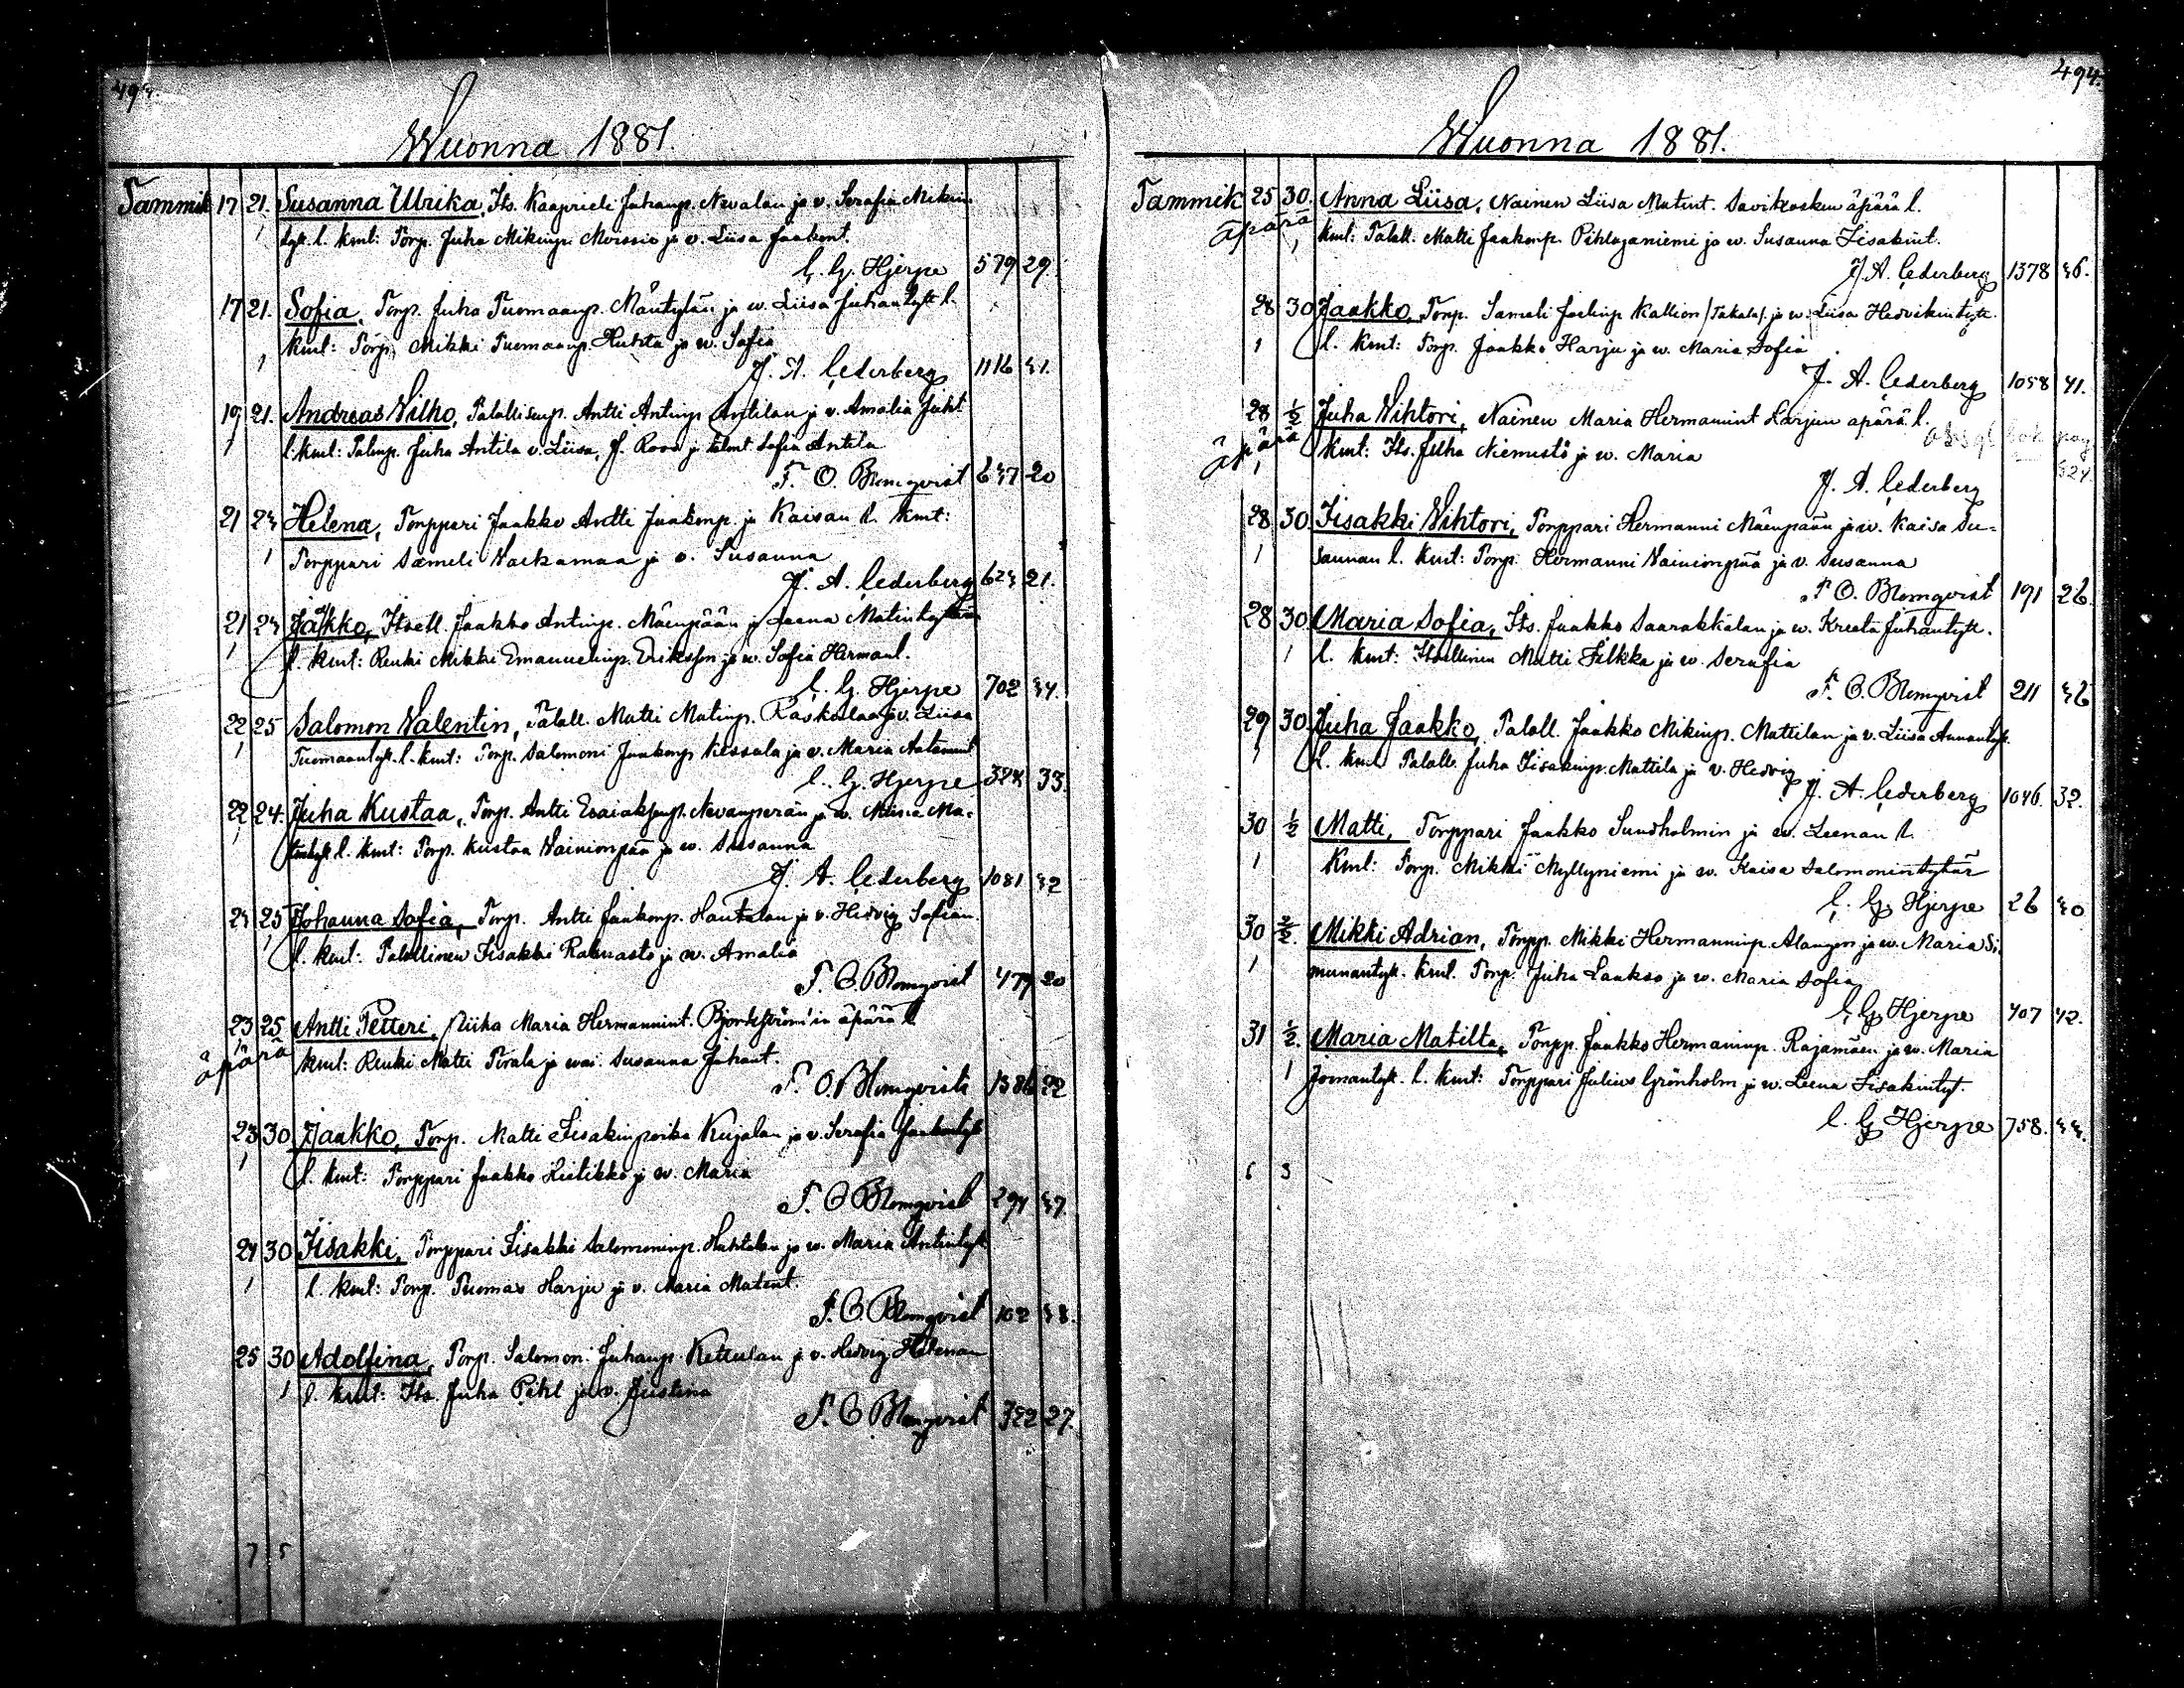 494.
Wuonna 1881.
Tammik 17 21. Susanna Ulrika, Its. Kaaprieli Juhanp. Nevalan ja v. Serafia Mikin
1 tyt. l. kmt: Torp. Juha Mikinp. Moisio ja v. Liisa Jaakont.
C. G. Hjerpe 579 29.
17 21. Sofia, Torp. Juha Tuomaanp. Mäntylän ja w. Liisa Juhantyt. l.
1 kmt: Torp. Mikki Tuomaanp. Huhta ja w. Sofia
J. A. Cederberg 1116 41.
19 21. Andreas Vilho, Palollisenp. Antti Antinp. Antilan ja v. Amalia Juht
1 l. kmt: Talonp. Juha Antila v. Liisa, J. Roos ja talont. Sofia Antila
F. O. Blomqvist 647 20
21 24 Helena, Torppari Jaakko Antti Jaakonp. ja Kaisan l. kmt:
1 Torppari Sameli Warkamaa ja v. Susanna
J. A. Cederberg 624 21.
21 24 Jaakko, Itsell. Jaakko Antinp. Mäenpään ja Leena Matintyttären
1 l. kmt: Renki Mikki Emanuelinp. Eriksson ja w. Sofia Hermanl.
C. G. Hjerpe 702 44.
22 25 Salomon Valentin, Palall. Matti Matinp. Raskulaa ja v. Liisa
1 Tuomaantyt. l. kmt: Torp. Salomoni Jaakonp. Kessala ja v. Maria Aatamint
C. G. Hjerpe 324 33.
22 24. Juha Kustaa, Torp. Antti Esaiaksenp. Nevanperän ja w. Maria Ma-
1 tintyt l. kmt: Torp. Kustaa Wainionpää ja w. Susanna
J. A. Cederberg 1081 42
24 25 Johanna Sofia, Torp. Antti Jaakonp. Hautalan ja v. Hedvig Sofian
1 l. kmt: Palollinen Iisakki Rahnasto ja w. Amalia
F. O. Blomqvist 479 20
23 25 Antti Petteri, Piika Maria Hermannint. Björkström'in äpärä l.
äpärä 1 kmt: Renki Matti Torala ja wai. Susanna Juhant.
F. O. Blomqvist 1386 22
23 30 Jaakko, Torp. Matti Iisakinpoika Kujalan ja v. Serafia Jaakontyt
1 l. kmt: Torppari Jaakko Hietikko ja w. Maria
F. O. Blomqvist 294 47.
24 30 Iisakki, Torppari Iisakki Salomoninp. Huhtalan ja w. Maria Antintyt
1 l. kmt: Torp. Tuomas Harju ja v. Maria Matint.
F. O. Blomqvist 102 48.
25 30 Adolfina, Torp. Salomon: Juhanp. Kettulan ja v. Hedvig Helenan
1 l. kmt: Its. Juha Pihl ja v. Justina
F. O. Blomqvist 322 27.
7 5
494.
Wuonna 1881.
Tammik 25 30. Anna Liisa, Nainen Liisa Matint. Savikosken äpärä l.
äpärä 1 kmt: Palall. Matti Jaakonp. Pihlajaniemi ja w. Susanna Iisakint.
J. A. Cederberg 1378 46.
28 30 Jaakko, Torp. Sameli Joelinp. Kallion /Takala/ ja w. Liisa Hedvikintytt.
1 l. kmt: Torp. Jaakko Harju ja w. Maria Sofia
J. A. Cederberg 1058 41.
28 1/2 Juha Wihtori, Nainen Maria Hermannint Larjun äpärä l.
äpärä 1 kmt: Its. Juha Niemistö ja w. Maria
J. A. Cederberg
28 30 Iisakki Wihtori, Torppari Hermanni Mäenpään ja w. Kaisa Su-
1 sannan l. kmt: Torp. Hermanni Wainionpää ja v. Susanna
F. O. Blomqvist 191 26.
28 30. Maria Sofia, Its. Jaakko Saarakkalan ja w. Kreeta Juhantytt.
1 l. kmt: Itsellinen Matti Filkka ja w. Serafia
F. O. Blomqvist 211 46
29 30 Juha Jaakko, Palall. Jaakko Mikinp. Mattilan ja v. Liisa Annantyt.
1 l. kmt Palall. Juha Iisakinp. Mattila ja v. Hedvig
J. A. Cederberg 1046. 32.
30 1/2 Matti, Torppari Jaakko Sundholmin ja w. Leenan l.
1 kmt: Torp. Mikki Myllyniemi ja w. Kaisa Salomonintytär
C. G. Hjerpe 26 40
30 2/2. Mikki Adrian, Torpp. Mikki Hermanninp. Alangon ja w. Maria Si-
1 munantyt. kmt. Torp. Juha Laakso ja w. Maria Sofia
C. G. Hjerpe 407 42.
31 1/2. Maria Matilta, Torpp. Jaakko Hermaninp. Rajamäen ja w. Maria
1 Joonantyt. l. kmt: Torppari Julius Grönholm ja w. Leena Iisakintyt.
C. G. Hjerpe 758. 44.
6 3